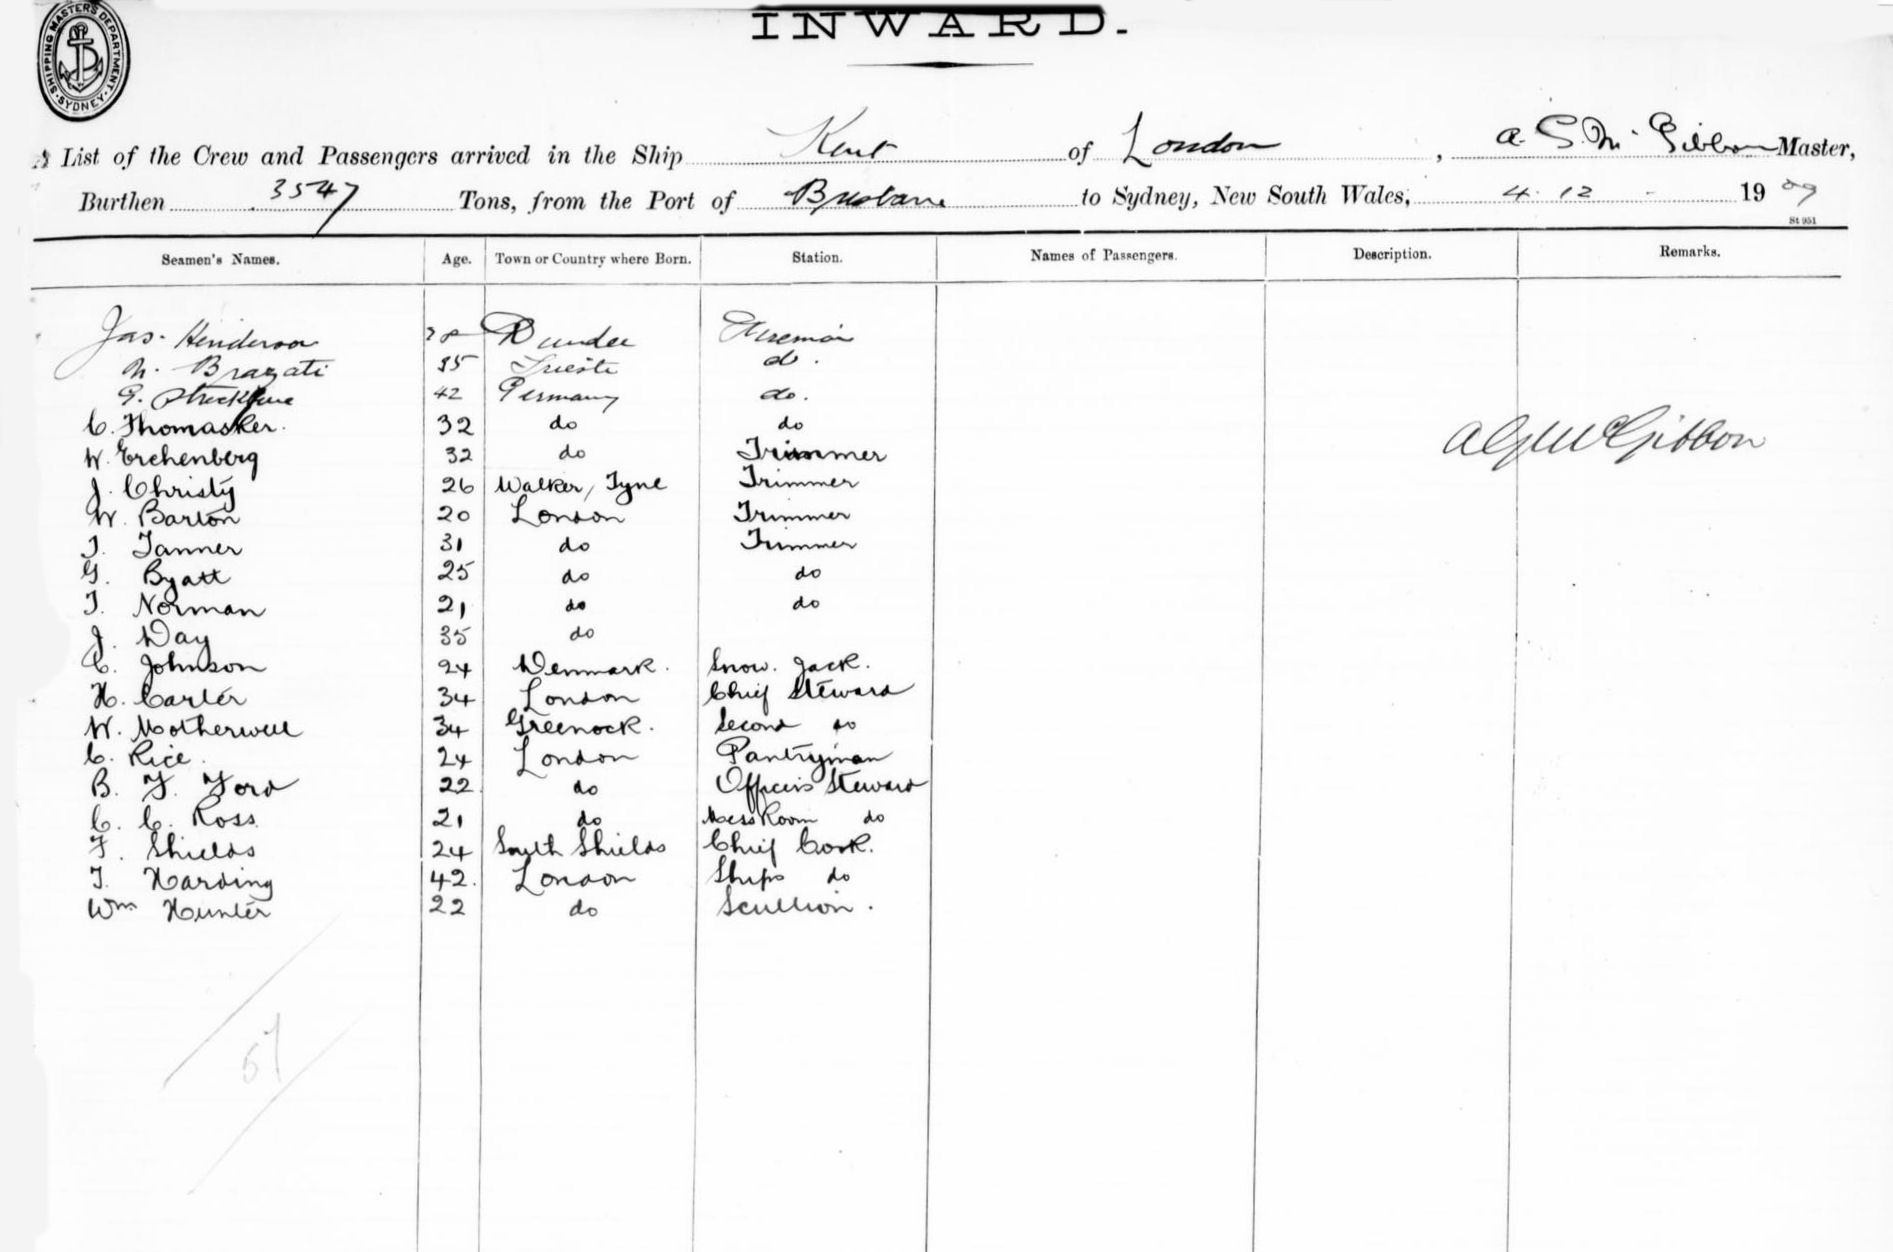 SHIPPING MASTERS DEPARTMENT. SYDNEY
INWARD.
A List of the Crew and Passengers arrived in the Ship Kent of London, A. G. Mc Gibbon Master,
Burthen 3547 Tons, from the Port of Brisbane to Sydney, New South Wales, 4. 12 - 1909
St 951
Seamen's Names. Age. Town or Country where Born. Station. Names of Passengers. Description. Remarks.
Jas. Henderson Dundee Fireman
N. Brazati 35 Trieste do.
G. 42 Germany do.
C. Thomasker. 32 do do
A G McGibbon
W. Erchenberg 32 do Trimmer
J. Christy 26 Walker, Tyne Trimmer
W. Barton 20 London Trimmer
T. Tanner 31 do Trimmer
G. Byatt 25 do do
T. Norman 21 do do
J. Day 35 do
C. Johnson 24 Denmark. Snow. Jack.
H. Carter 34 London Chief Steward
W. Motherwell 34 Greenock. Second do
C. Rice. 24 London Pantryman
B. F. Ford 22 do Officers Steward
C. C. Ross. 21 do MessRoom do
F. Shields 24 South Shields Chief Cook.
T. Harding 42. London Ships do
Wm Hunter 22 do Scullion.
57